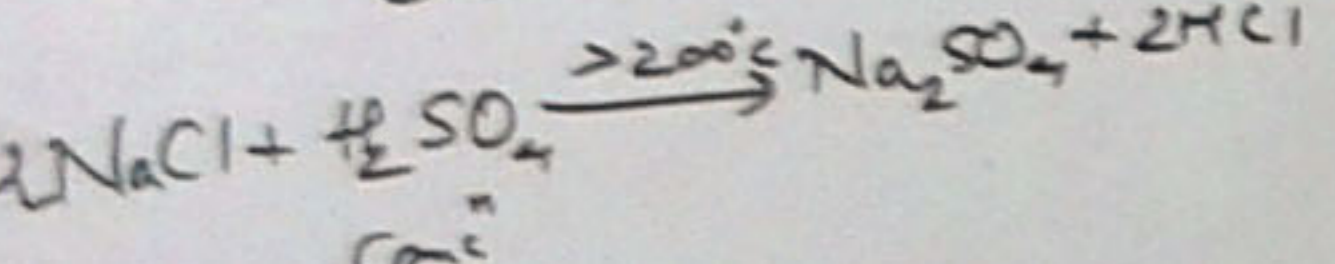 2NaCl + H₂SO₄ >200°C → Na₂SO₄ + 2HCl
Concⁿ